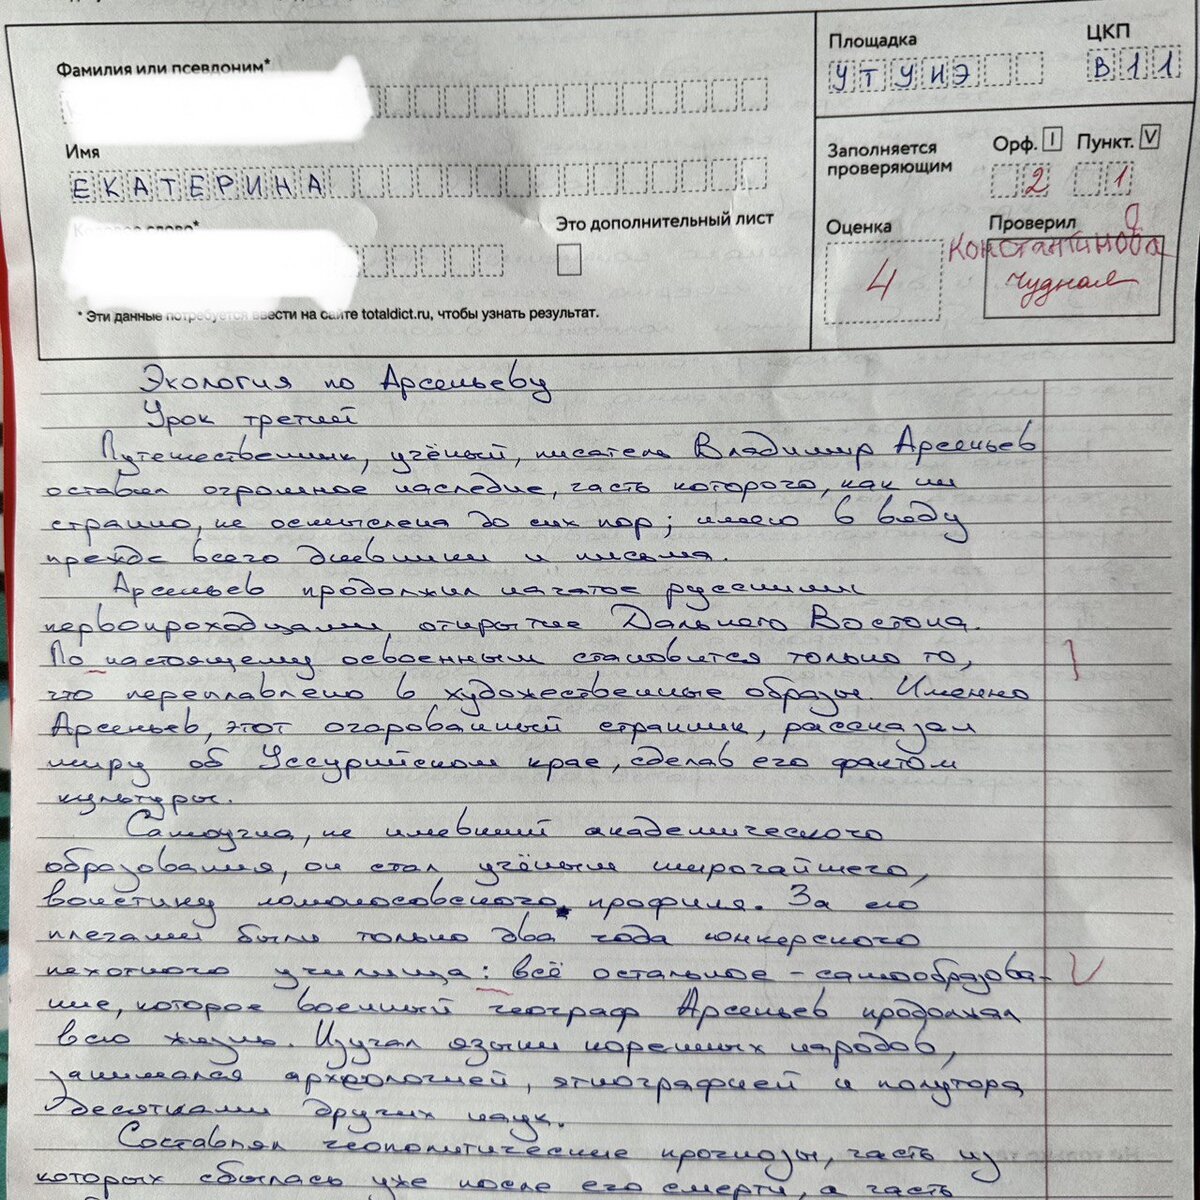 Фамилия или псевдоним*
Имя
ЕКАТЕРИНА
Кодовое слово*
Это дополнительный лист
* Эти данные потребуется ввести на сайте totaldict.ru, чтобы узнать результат.
Площадка
УТУИЭ
ЦКП
В11
Заполняется проверяющим
Орф. I Пункт. V
2 1
Оценка
4
Проверил
Константинова
Чудная
Экология по Арсеньеву
Урок третий
Путешественник, учёный, писатель Владимир Арсеньев
оставил огромное наследие, часть которого, как ни
странно, не осмыслена до сих пор; имею в виду
прежде всего дневники и письма.
Арсеньев продолжил начатое русскими
первопроходцами открытие Дального Востока.
По настоящему освоенным становится только то,
что переплавлено в художественные образы. Именно
Арсеньев, этот очарованный странник, рассказал
миру об Уссурийском крае, сделав его фактом
культуры.
Самоучка, не имевший академического
образования, он стал учёным широчайшего,
воистину ломоносовского профиля. За его
плечами были только два года юнкерского
пехотного училища: всё остальное - самообразова-
ние, которое военный географ Арсеньев продолжал
всю жизнь. Изучал языки коренных народов,
занимался археологией, этнографией и полутора
десятками других наук.
Составлял геополитические прогнозы, часть из
которых сбылась уже после его смерти, а часть